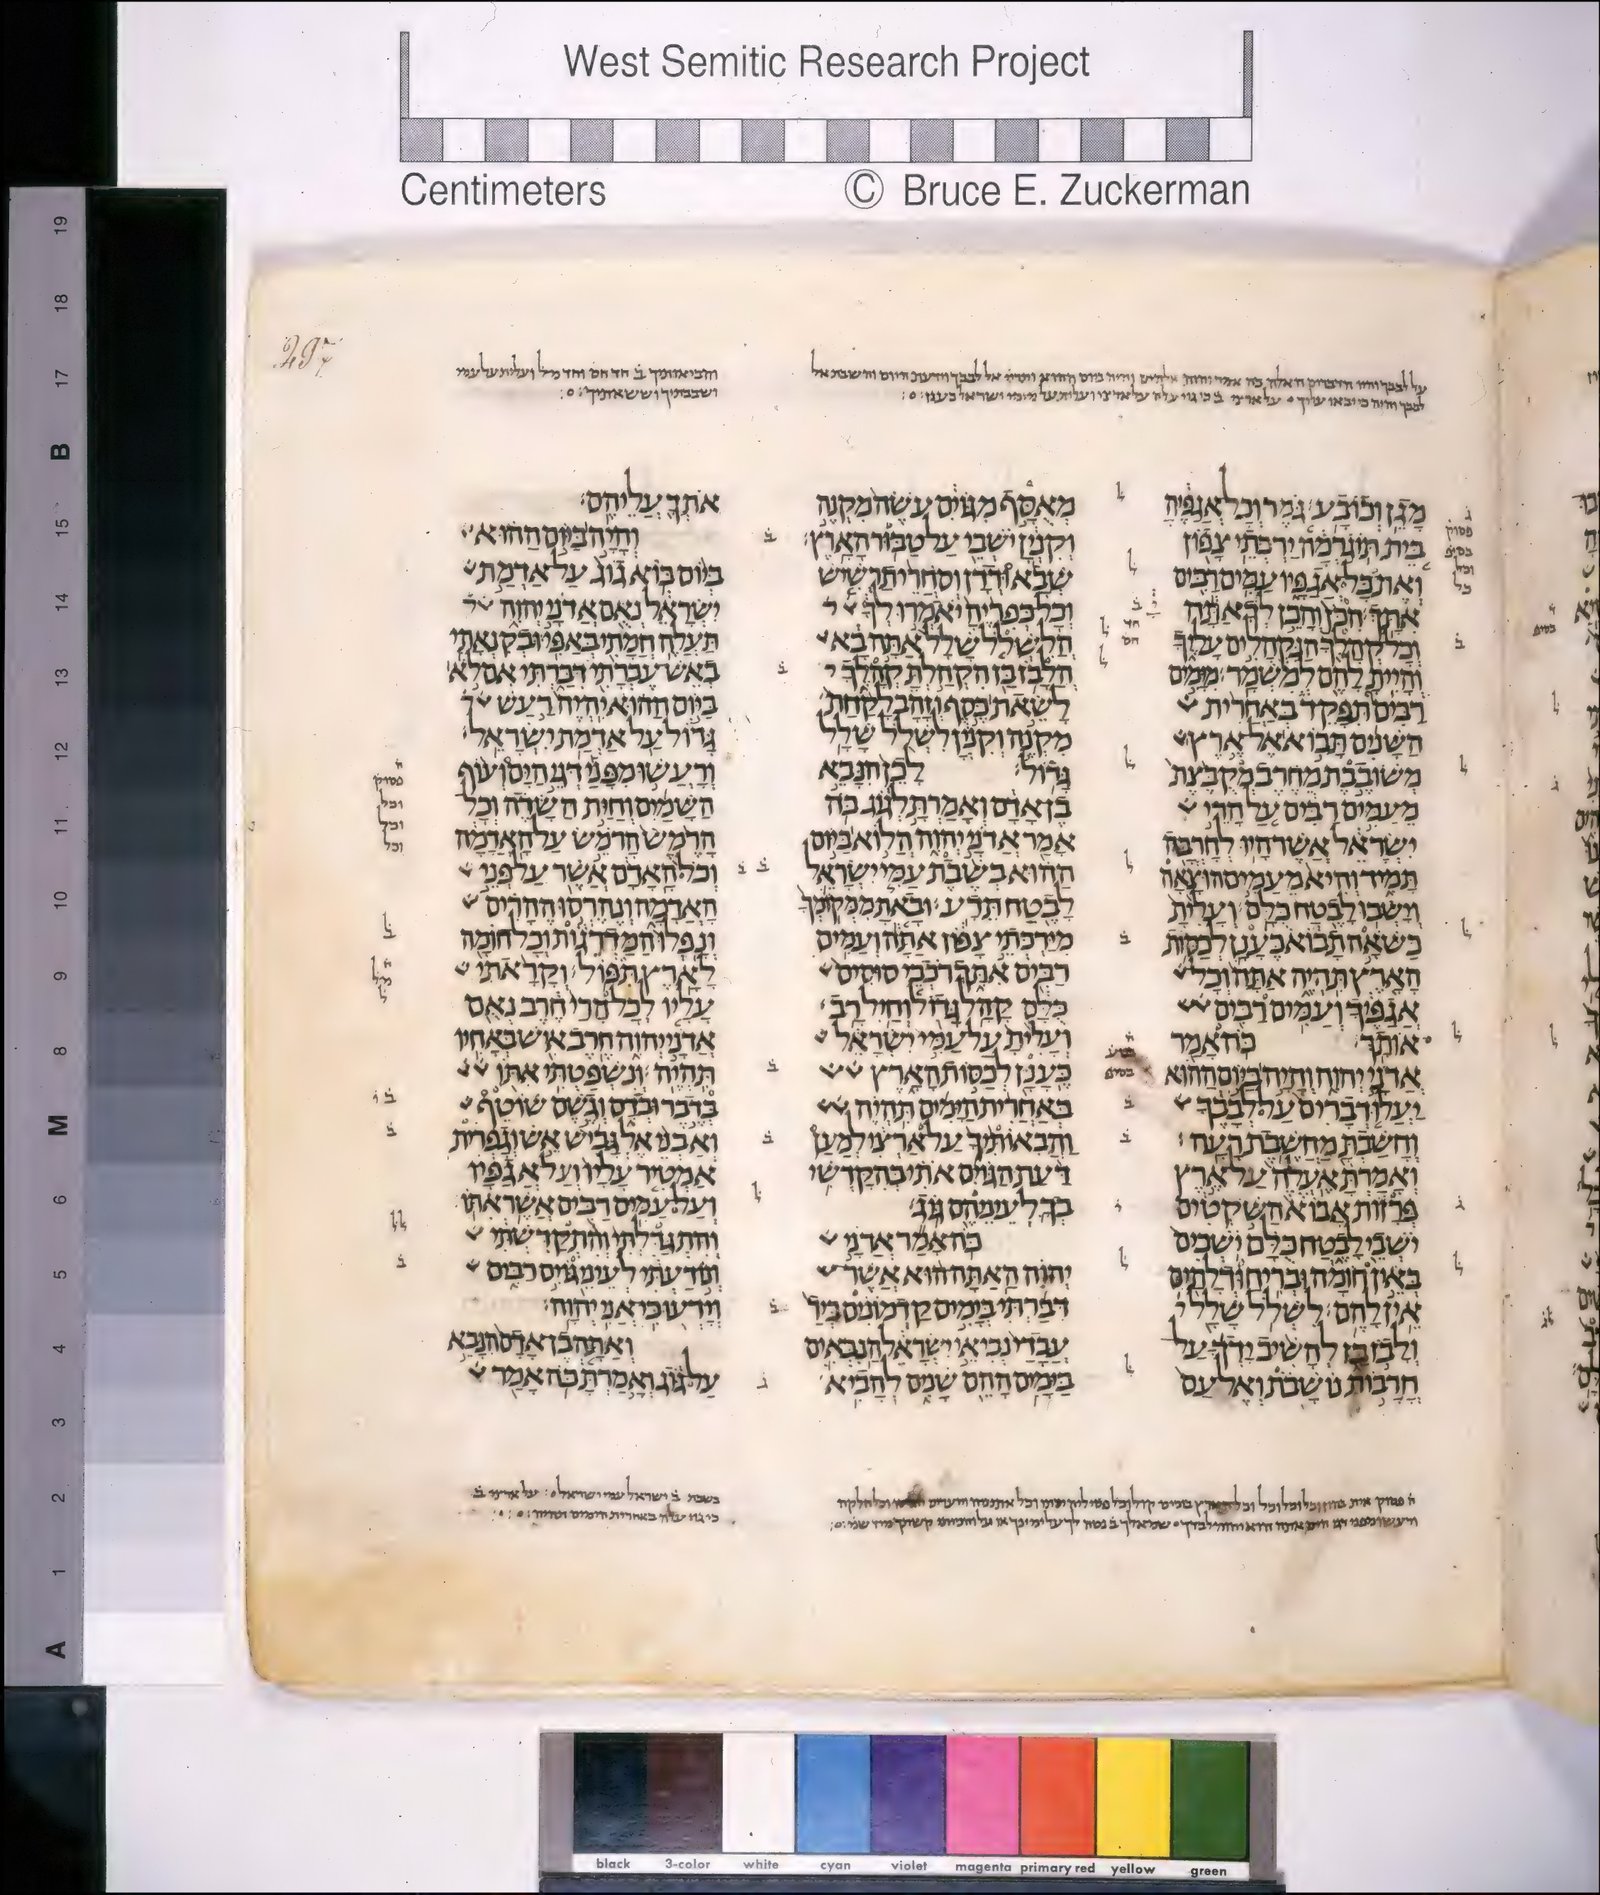 West Semitic Research Project
Centimeters © Bruce E. Zuckerman
מָגֵן וְכוֹבָע׃ גֹּמֶר וְכָל אֲגַפֶּיהָ
בֵּית תּוֹגַרְמָה יַרְכְּתֵי צָפוֹן
וְאֶת כָּל אֲגַפָּיו עַמִּים רַבִּים
אִתָּךְ׃ הִכֹּן וְהָכֵן לְךָ אַתָּה
וְכָל קְהָלֶךָ הַנִּקְהָלִים עָלֶיךָ
וְהָיִיתָ לָהֶם לְמִשְׁמָר׃ מִיָּמִים
רַבִּים תִּפָּקֵד בְּאַחֲרִית
הַשָּׁנִים תָּבוֹא אֶל אֶרֶץ
מְשׁוֹבֶבֶת מֵחֶרֶב מְקֻבֶּצֶת
מֵעַמִּים רַבִּים עַל הָרֵי
יִשְׂרָאֵל אֲשֶׁר הָיוּ לְחָרְבָּה
תָּמִיד וְהִיא מֵעַמִּים הוּצָאָה
וְיָשְׁבוּ לָבֶטַח כֻּלָּם׃ וְעָלִיתָ
כַּשֹּׁאָה תָבוֹא כֶּעָנָן לְכַסּוֹת
הָאָרֶץ תִּהְיֶה אַתָּה וְכָל
אֲגַפֶּיךָ וְעַמִּים רַבִּים
אוֹתָךְ׃ כֹּה אָמַר
אֲדֹנָי יְהוִה וְהָיָה בַּיּוֹם הַהוּא
יַעֲלוּ דְבָרִים עַל לְבָבֶךָ
וְחָשַׁבְתָּ מַחֲשֶׁבֶת רָעָה׃
וְאָמַרְתָּ אֶעֱלֶה עַל אֶרֶץ
פְּרָזוֹת אָבוֹא הַשֹּׁקְטִים
יֹשְׁבֵי לָבֶטַח כֻּלָּם יֹשְׁבִים
בְּאֵין חוֹמָה וּבְרִיחַ וּדְלָתַיִם
אֵין לָהֶם׃ לִשְׁלֹל שָׁלָל
וְלָבֹז בַּז לְהָשִׁיב יָדְךָ עַל
חֳרָבוֹת נוֹשָׁבֹת וְאֶל עַם
מְאֻסָּף מִגּוֹיִם עֹשֶׂה מִקְנֶה
וְקִנְיָן יֹשְׁבֵי עַל טַבּוּר הָאָרֶץ׃
שְׁבָא וּדְדָן וְסֹחֲרֵי תַרְשִׁישׁ
וְכָל כְּפִרֶיהָ יֹאמְרוּ לְךָ
הֲלִשְׁלֹל שָׁלָל אַתָּה בָא
הֲלָבֹז בַּז הִקְהַלְתָּ קְהָלֶךָ
לָשֵׂאת כֶּסֶף וְזָהָב לָקַחַת
מִקְנֶה וְקִנְיָן לִשְׁלֹל שָׁלָל
גָּדוֹל׃ לָכֵן הִנָּבֵא
בֶן אָדָם וְאָמַרְתָּ לְגוֹג כֹּה
אָמַר אֲדֹנָי יְהוִה הֲלוֹא בַּיּוֹם
הַהוּא בְּשֶׁבֶת עַמִּי יִשְׂרָאֵל
לָבֶטַח תֵּדָע׃ וּבָאתָ מִמְּקוֹמְךָ
מִיַּרְכְּתֵי צָפוֹן אַתָּה וְעַמִּים
רַבִּים אִתָּךְ רֹכְבֵי סוּסִים
כֻּלָּם קָהָל גָּדוֹל וְחַיִל רָב׃
וְעָלִיתָ עַל עַמִּי יִשְׂרָאֵל
כֶּעָנָן לְכַסּוֹת הָאָרֶץ
בְּאַחֲרִית הַיָּמִים תִּהְיֶה
וַהֲבִאוֹתִיךָ עַל אַרְצִי לְמַעַן
דַּעַת הַגּוֹיִם אֹתִי בְּהִקָּדְשִׁי
בְךָ לְעֵינֵיהֶם גּוֹג׃
כֹּה אָמַר אֲדֹנָי
יְהוִה הַאַתָּה הוּא אֲשֶׁר
דִּבַּרְתִּי בְּיָמִים קַדְמוֹנִים בְּיַד
עֲבָדַי נְבִיאֵי יִשְׂרָאֵל הַנִּבְּאִים
בַּיָּמִים הָהֵם שָׁנִים לְהָבִיא
אֹתְךָ עֲלֵיהֶם׃
וְהָיָה בַּיּוֹם הַהוּא
בְּיוֹם בּוֹא גוֹג עַל אַדְמַת
יִשְׂרָאֵל נְאֻם אֲדֹנָי יְהוִה
תַּעֲלֶה חֲמָתִי בְּאַפִּי׃ וּבְקִנְאָתִי
בְאֵשׁ עֶבְרָתִי דִּבַּרְתִּי אִם לֹא
בַּיּוֹם הַהוּא יִהְיֶה רַעַשׁ
גָּדוֹל עַל אַדְמַת יִשְׂרָאֵל׃
וְרָעֲשׁוּ מִפָּנַי דְּגֵי הַיָּם וְעוֹף
הַשָּׁמַיִם וְחַיַּת הַשָּׂדֶה וְכָל
הָרֶמֶשׂ הָרֹמֵשׂ עַל הָאֲדָמָה
וְכֹל הָאָדָם אֲשֶׁר עַל פְּנֵי
הָאֲדָמָה וְנֶהֶרְסוּ הֶהָרִים
וְנָפְלוּ הַמַּדְרֵגוֹת וְכָל חוֹמָה
לָאָרֶץ תִּפּוֹל׃ וְקָרָאתִי
עָלָיו לְכָל הָרַי חֶרֶב נְאֻם
אֲדֹנָי יְהוִה חֶרֶב אִישׁ בְּאָחִיו
תִּהְיֶה׃ וְנִשְׁפַּטְתִּי אִתּוֹ
בְּדֶבֶר וּבְדָם וְגֶשֶׁם שׁוֹטֵף
וְאַבְנֵי אֶלְגָּבִישׁ אֵשׁ וְגָפְרִית
אַמְטִיר עָלָיו וְעַל אֲגַפָּיו
וְעַל עַמִּים רַבִּים אֲשֶׁר אִתּוֹ׃
וְהִתְגַּדִּלְתִּי וְהִתְקַדִּשְׁתִּי
וְנוֹדַעְתִּי לְעֵינֵי גּוֹיִם רַבִּים
וְיָדְעוּ כִּי אֲנִי יְהוָה׃
וְאַתָּה בֶן אָדָם הִנָּבֵא
עַל גּוֹג וְאָמַרְתָּ כֹּה אָמַר
19
18
17
B
15
14
13
12
11
10
9
8
M
6
5
4
3
2
1
A
black 3-color white cyan violet magenta primary red yellow green